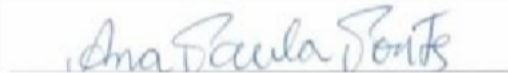 Ana Paula Pontes